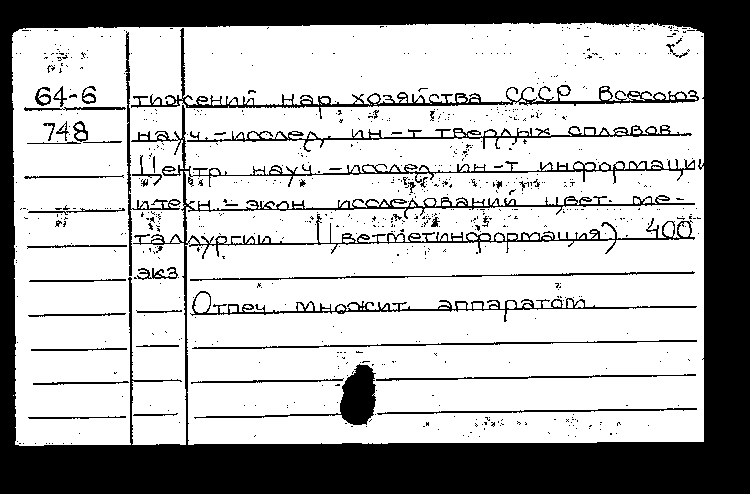 2
64-6 тижений нар. хозяйства СССР. Всесоюз.
748 науч.-исслед. ин-т твердых сплавов.
Центр. науч.-исслед. ин-т информации
и техн.-экон. исследований цвет. ме-
таллургии. Цветметинформация). 400
экз.
Отпеч. множит. аппаратом.